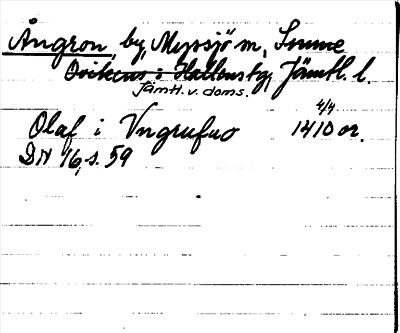 Ångron, by, Myssjö sn, Sunne
Ovikens o Hallens tg, Jämtl. l.
Jämtl. v. doms.
Olaf i Vngrufuo 4/4 1410 or.
DN 16, s. 59